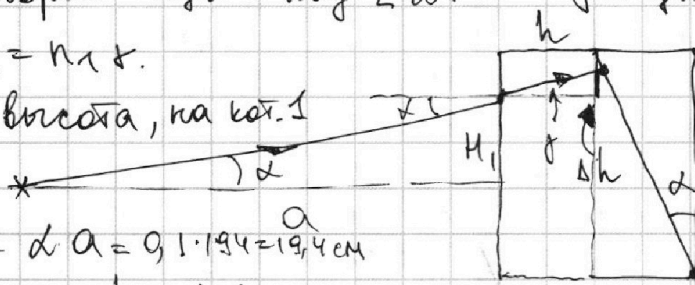 h
= n₁ γ.
высота, на кот. 1
α
H₁
γ
Δh
α
α
a
α a = 0,1·194 = 19,4 см